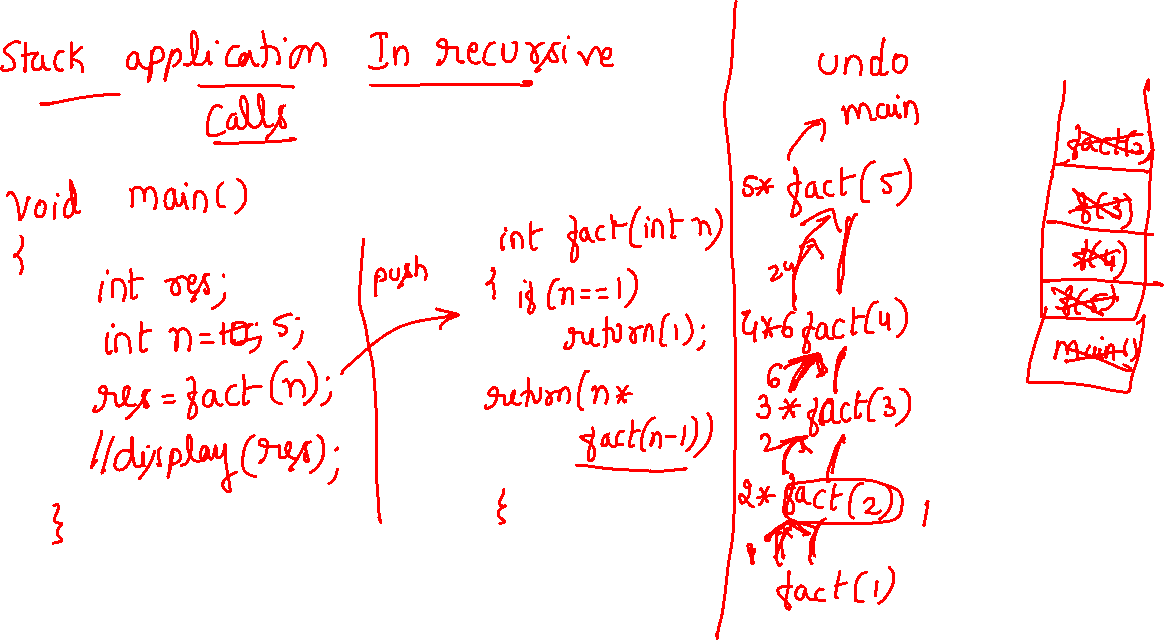 Stack application In recursive
Calls
void main()
{
int res;
int n=10; 5;
res=fact(n);
//display(res);
}
push
int fact(int n)
{ if (n==1)
return(1);
return(n*
fact(n-1))
{
undo
main
5* fact(5)
24
4*6 fact(4)
6
3 * fact(3)
2
2* fact(2) 1
1
fact(1)
fact(2)
f(3)
f(4)
f(5)
main()